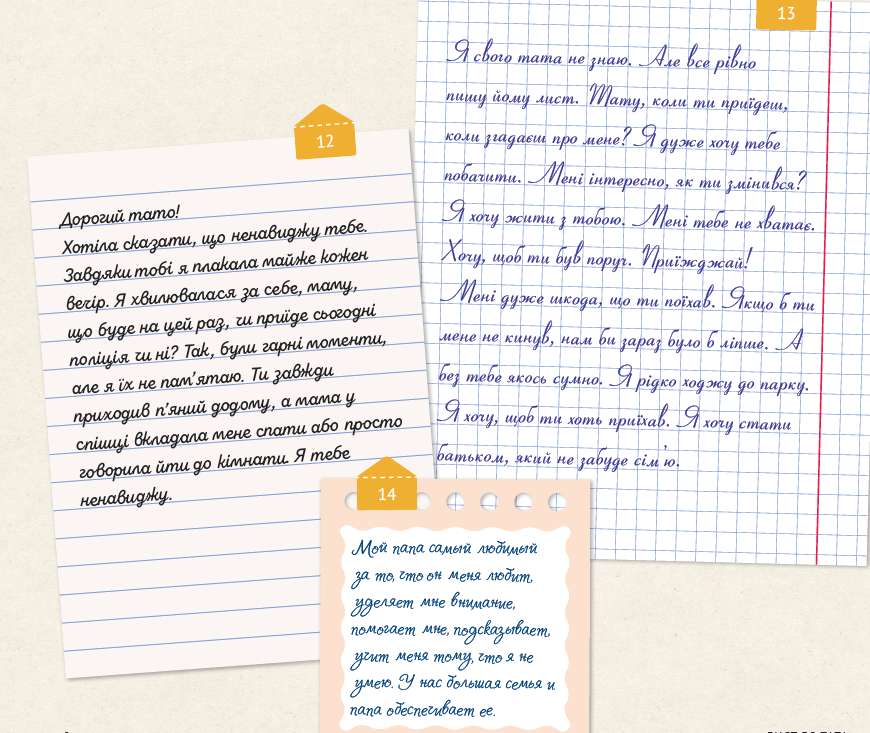 12
Дорогий тато!
Хотіла сказати, що ненавиджу тебе.
Завдяки тобі я плакала майже кожен
вечір. Я хвилювалася за себе, маму,
що буде на цей раз, чи приїде сьогодні
поліція чи ні? Так, були гарні моменти,
але я їх не пам'ятаю. Ти завжди
приходив п'яний додому, а мама у
спішці вкладала мене спати або просто
говорила йти до кімнати. Я тебе
ненавиджу.
13
Я свого тата не знаю. Але все рівно
пишу йому лист. Тату, коли ти приїдеш,
коли згадаєш про мене? Я дуже хочу тебе
побачити. Мені інтересно, як ти змінився?
Я хочу жити з тобою. Мені тебе не хватає.
Хочу, щоб ти був поруч. Приїжджай!
Мені дуже шкода, що ти поїхав. Якщо б ти
мене не кинув, нам би зараз було б ліпше. А
без тебе якось сумно. Я рідко ходжу до парку.
Я хочу, щоб ти хоть приїхав. Я хочу стати
батьком, який не забуде сім'ю.
14
Мой папа самый любимый
за то, что он меня любит,
уделяет мне внимание,
помогает мне, подсказывает,
учит меня тому, что я не
умею. У нас большая семья и
папа обеспечивает ее.